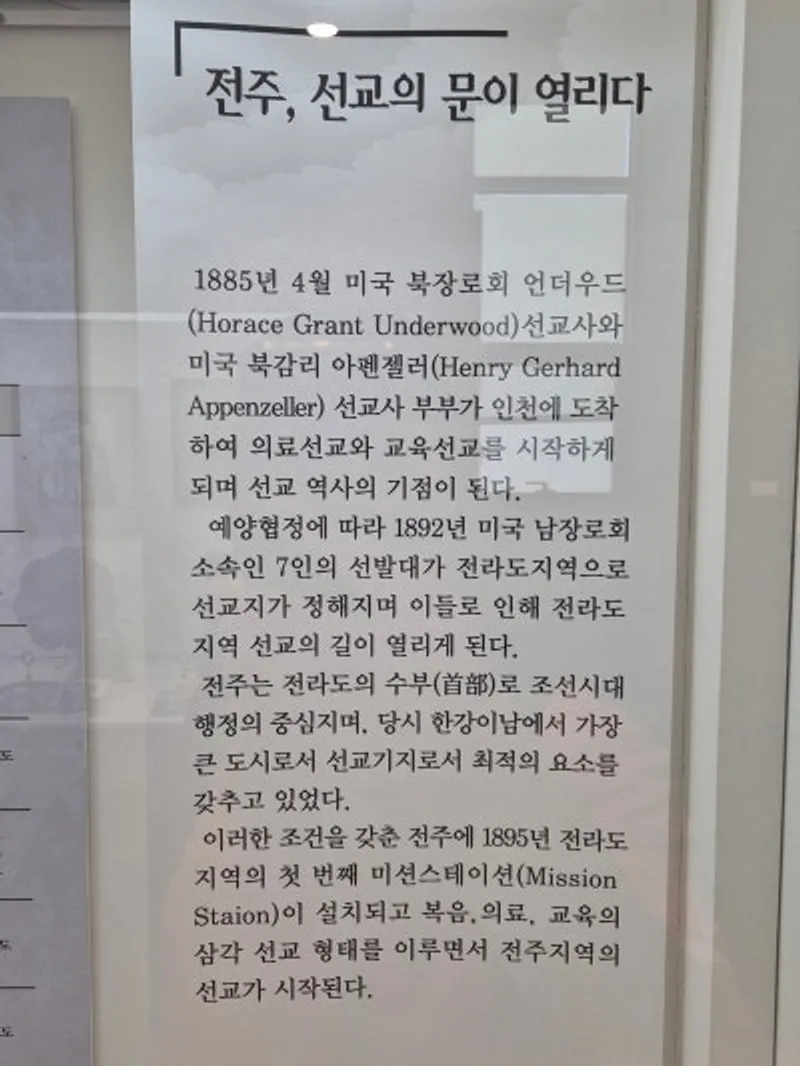 전주, 선교의 문이 열리다
1885년 4월 미국 북장로회 언더우드
(Horace Grant Underwood)선교사와
미국 북감리 아펜젤러(Henry Gerhard
Appenzeller) 선교사 부부가 인천에 도착
하여 의료선교와 교육선교를 시작하게
되며 선교 역사의 기점이 된다.
예양협정에 따라 1892년 미국 남장로회
소속인 7인의 선발대가 전라도지역으로
선교지가 정해지며 이들로 인해 전라도
지역 선교의 길이 열리게 된다.
전주는 전라도의 수부(首部)로 조선시대
행정의 중심지며, 당시 한강이남에서 가장
큰 도시로서 선교기지로서 최적의 요소를
갖추고 있었다.
이러한 조건을 갖춘 전주에 1895년 전라도
지역의 첫 번째 미션스테이션(Mission
Staion)이 설치되고 복음, 의료, 교육의
삼각 선교 형태를 이루면서 전주지역의
선교가 시작된다.
도
도
도